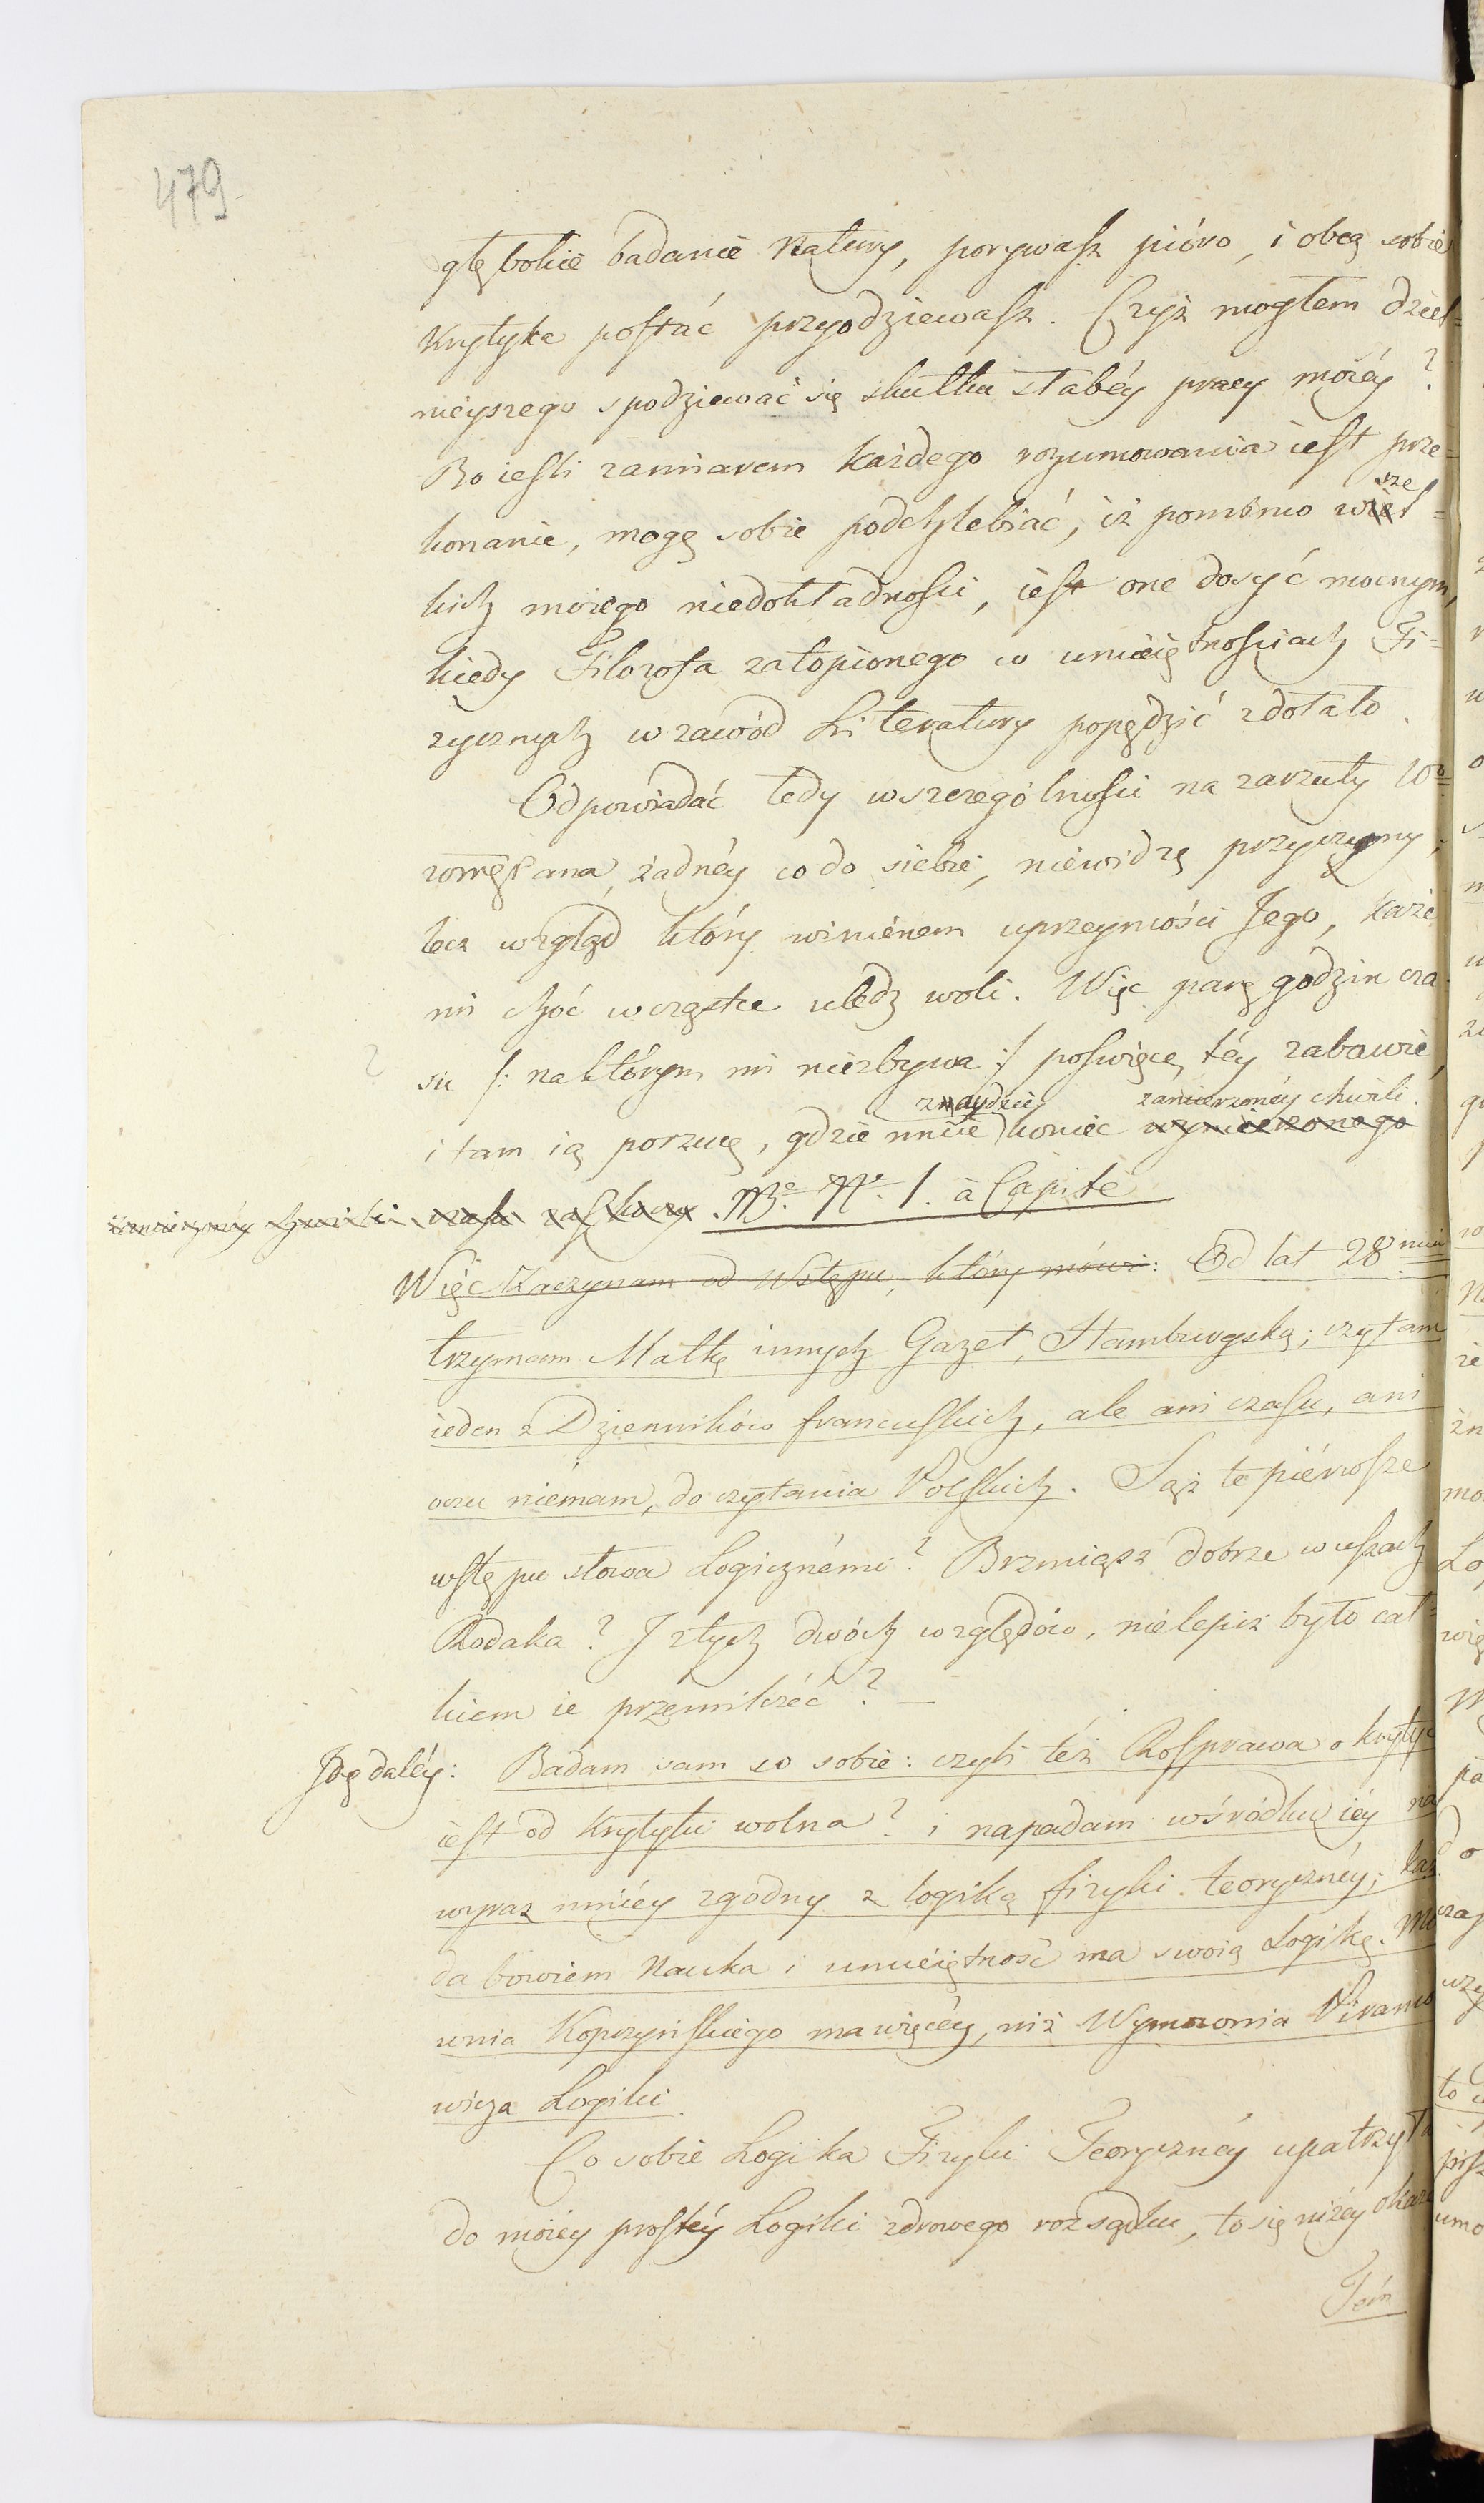 479
głębokie badanie Natury, porywasz pióro, i obcą sobie
Krytyka postać przyodziewasz. Czyż mogłem dziel=
nieyszego spodziewać się skutku słabéy pracy moiéy?
Bo iesli zamiarem każdego rozumowania iest prze=
konanie, mogę sobie podchlebiać, iż pomimo wszel=
kich moiego niedokładnosci, iest one dosyć mocnym,
kiedy Filozofa zatopionego w umieiętnosciach Fi=
zycznych w zawód Literatury popędzić zdołało.
Odpowiadać tedy w szczególnosci na zarzuty
żadnéy co do siebie, niewidzę przyczyny;
lecz wzgląd który winienem uprzeymości Jego, każe
mi choć w cząstce uledz woli. Więc parę godzin cza
su /: na którym mi niezbywa :/ poswięcę téy zabawie,
znaydzie zamierzonéy chwili.
i tam ią porzucę, gdzie mnie koniec wymierzonego
czasu zaskoczy. Nr. 1. à Capite
Więc Zaczynam od Wstępu, który mówi: Od lat 28miu
trzymam Matkę innych Gazet, Hamburgską; czytam
ieden z Dzienników francuskich, ale ani czasu, ani
oczu niémam, do czytania Polskich. Sąż te piérwsze
wstępu słowa Logicznémi? Brzmiąsz dobrze w uszach
Rodaka? I z tych dwóch względów, nielepiż było cał=
kiem ie przemilczéć? —
Idę daléy: Badam sam w sobie: czyli też Rosprawa o kryty
iest od Krytyki wolna? i napadam wśródku iéy na
wyraz mniéy zgodny z logiką fizyki teoryczney; każ
da bowiem Nauka i umieiętność ma swoią Logikę. Mó
wnia Kopczyńskiego ma więcéy, niż Wymownia Piramo
wicza Logiki.
Co sobie Logika Fizyki Teorycznéy upatrzyła
do moiéy prostéy Logiki zdrowego rozsądku, to się niżéy okaże
Tém